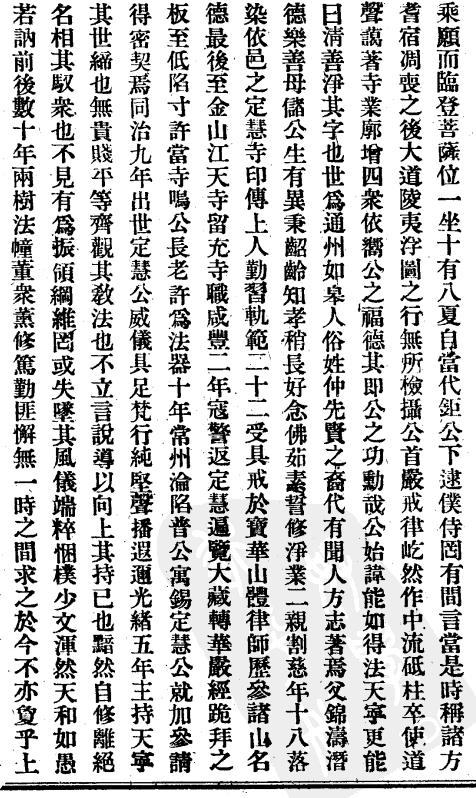 乘願而臨登菩薩位一坐十有八夏自當代鉅公下逮僕侍罔有間言當是時稱諸方
耆宿凋喪之後大道陵夷浮圖之行無所檢攝公首嚴戒律屹然作中流砥柱卒使道
聲藹著寺業廓增四衆依嚮公之福德其即公之功勳哉公始諱能如得法天寧更能
曰淸善淨其字也世爲通州如皋人俗姓仲先賢之裔代有聞人方志著焉父錦濤潛
德樂善母儲公生有異秉齠齡知孝稍長好念佛茹素誓修淨業二親割慈年十八落
染依邑之定慧寺印傳上人勤習軌範二十二受具戒於寶華山體律師歷參諸山名
德最後至金山江天寺留充寺職咸豐二年寇警返定慧遍覽大藏轉華嚴經跪拜之
板至低陷寸許當寺鳴公長老許爲法器十年常州淪陷普公寓錫定慧公就加參請
得密契焉同治九年出世定慧公威儀具足梵行純堅聲播遐邇光緒五年主持天寧
其世締也無貴賤平等齊觀其敎法也不立言說導以向上其持已也黯然自修離絕
名相其馭衆也不見有爲振領綱維罔或失墜其風儀端粹悃樸少文渾然天和如愚
若訥前後數十年兩樹法幢董衆薰修篤勤匪懈無一時之間求之於今不亦敻乎上